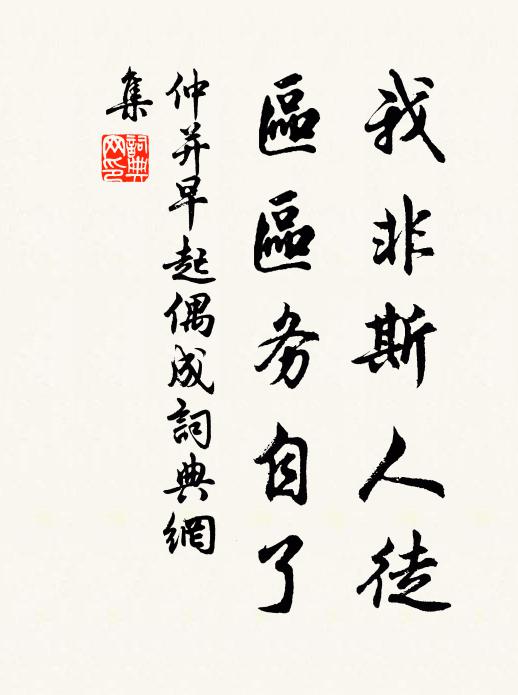 我非斯人徒
區區务自了
仲并早起偶成詞典網
集
詞典网印